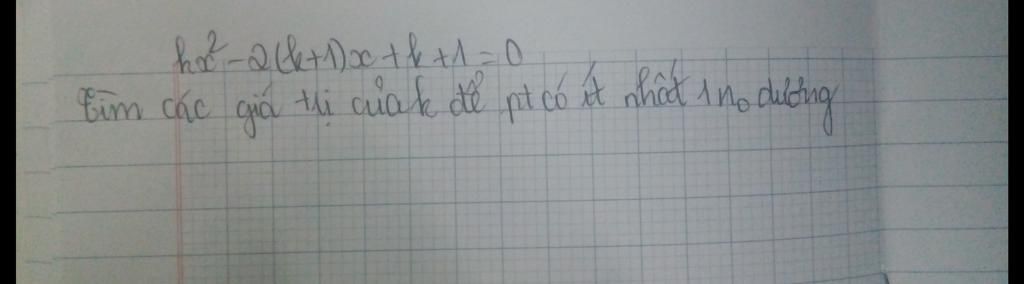 kx² - 2(k+1)x + k + 1 = 0
Tìm các giá trị của k để pt có ít nhất 1 n₀ dương